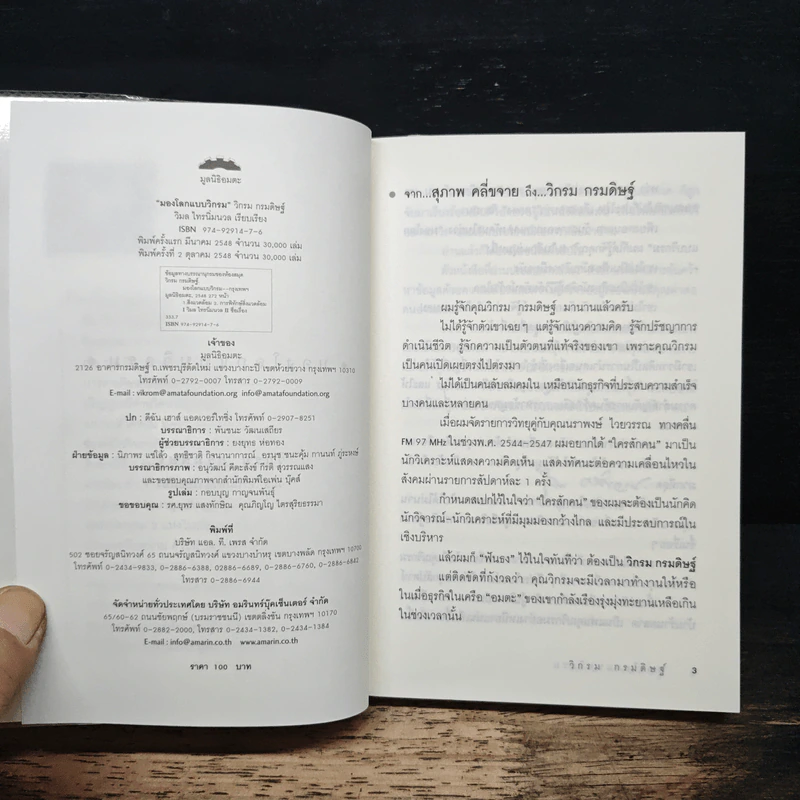 มูลนิธิอมตะ
"มองโลกแบบวิกรม" วิกรม กรมดิษฐ์
วิมล ไทรนิ่มนวล เรียบเรียง
ISBN 974-92914-7-6
พิมพ์ครั้งแรก มีนาคม 2548 จำนวน 30,000 เล่ม
พิมพ์ครั้งที่ 2 ตุลาคม 2548 จำนวน 30,000 เล่ม
ข้อมูลทางบรรณานุกรมของหอสมุด
วิกรม กรมดิษฐ์.
มองโลกแบบวิกรม--กรุงเทพฯ
มูลนิธิอมตะ, 2548 272 หน้า
1. สิ่งแวดล้อม 2. การพิทักษ์สิ่งแวดล้อม
I วิมล ไทรนิ่มนวล II ชื่อเรื่อง
333.7
ISBN 974-92914-7-6
เจ้าของ
มูลนิธิอมตะ
2126 อาคารกรมดิษฐ์ ถ.เพชรบุรีตัดใหม่ แขวงบางกะปิ เขตห้วยขวาง กรุงเทพฯ 10310
โทรศัพท์ 0-2792-0007 โทรสาร 0-2792-0009
E-mail : vikrom@amatafoundation.org info@amatafoundation.org
ปก : ดีฉัน เฮาส์ แอดเวอร์ไทซิ่ง โทรศัพท์ 0-2907-8251
บรรณาธิการ : พันชนะ วัฒนเสถียร
ผู้ช่วยบรรณาธิการ : ยงยุทธ ห่อทอง
ฝ่ายข้อมูล : นิภาพร แซ่โล้ว สุทธิชาติ กิจนานาการณ์ อรนุช ชนะคุ้ม กานนท์ ภู่ระหงษ์
บรรณาธิการภาพ : อนุวัฒน์ คีตะสังข์ กีรติ สุวรรณแสง
และขอขอบคุณภาพจากสำนักพิมพ์ไอเฟ่น บุ๊คส์
รูปเล่ม : กอบบุญ กาญจนพันธุ์
ขอขอบคุณ : รศ.ยุพร แสงทักษิณ คุณภิญโญ ไตรสุริยธรรมา
พิมพ์ที่
บริษัท แอล. ที. เพรส จำกัด
502 ซอยจรัญสนิทวงศ์ 65 ถนนจรัญสนิทวงศ์ แขวงบางบำหรุ เขตบางพลัด กรุงเทพฯ 10700
โทรศัพท์ 0-2434-9833, 0-2886-6388, 02886-6689, 0-2886-6760, 0-2886-6842
โทรสาร 0-2886-6944
จัดจำหน่ายทั่วประเทศโดย บริษัท อมรินทร์บุ๊คเซ็นเตอร์ จำกัด
65/60-62 ถนนชัยพฤกษ์ (บรมราชชนนี) เขตตลิ่งชัน กรุงเทพฯ 10170
โทรศัพท์ 0-2882-2000, โทรสาร 0-2434-1382, 0-2434-1384
E-mail : info@amarin.co.th www.amarin.co.th
ราคา 100 บาท
จาก...สุภาพ คลี่ขจาย ถึง...วิกรม กรมดิษฐ์
ผมรู้จักคุณวิกรม กรมดิษฐ์ มานานแล้วครับ
ไม่ได้รู้จักตัวเขาเฉยๆ แต่รู้จักแนวความคิด รู้จักปรัชญาการ
ดำเนินชีวิต รู้จักความเป็นตัวตนที่แท้จริงของเขา เพราะคุณวิกรม
เป็นคนเปิดเผยตรงไปตรงมา
ไม่ได้เป็นคนลับลมคมใน เหมือนนักธุรกิจที่ประสบความสำเร็จ
บางคนและหลายคน
เมื่อผมจัดรายการวิทยุคู่กับคุณนราพงษ์ ไวยวรรณ ทางคลื่น
FM 97 MHz ในช่วงพ.ศ. 2544–2547 ผมอยากได้ "ใครสักคน" มาเป็น
นักวิเคราะห์แสดงความคิดเห็น แสดงทัศนะต่อความเคลื่อนไหวใน
สังคมผ่านรายการสัปดาห์ละ 1 ครั้ง
กำหนดสเปกไว้ในใจว่า "ใครสักคน" ของผมจะต้องเป็นนักคิด
นักวิจารณ์–นักวิเคราะห์ที่มีมุมมองกว้างไกล และมีประสบการณ์ใน
เชิงบริหาร
แล้วผมก็ "ฟันธง" ไว้ในใจทันทีว่า ต้องเป็น วิกรม กรมดิษฐ์
แต่ติดขัดที่กังวลว่า คุณวิกรมจะมีเวลามาทำงานให้หรือ
ในเมื่อธุรกิจในเครือ "อมตะ" ของเขากำลังเรืองรุ่งพุ่งทะยานเหลือเกิน
ในช่วงเวลานั้น
วิกรม กรมดิษฐ์ 3